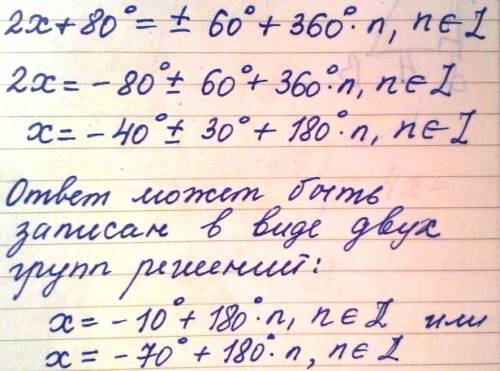 2x + 80° = ± 60° + 360°· n, n ∈ Z
2x = - 80° ± 60° + 360°· n, n ∈ Z
x = - 40° ± 30° + 180°· n, n ∈ Z
Ответ может быть
записан в виде двух
групп решений:
x = - 10° + 180°· n, n ∈ Z или
x = - 70° + 180°· n, n ∈ Z